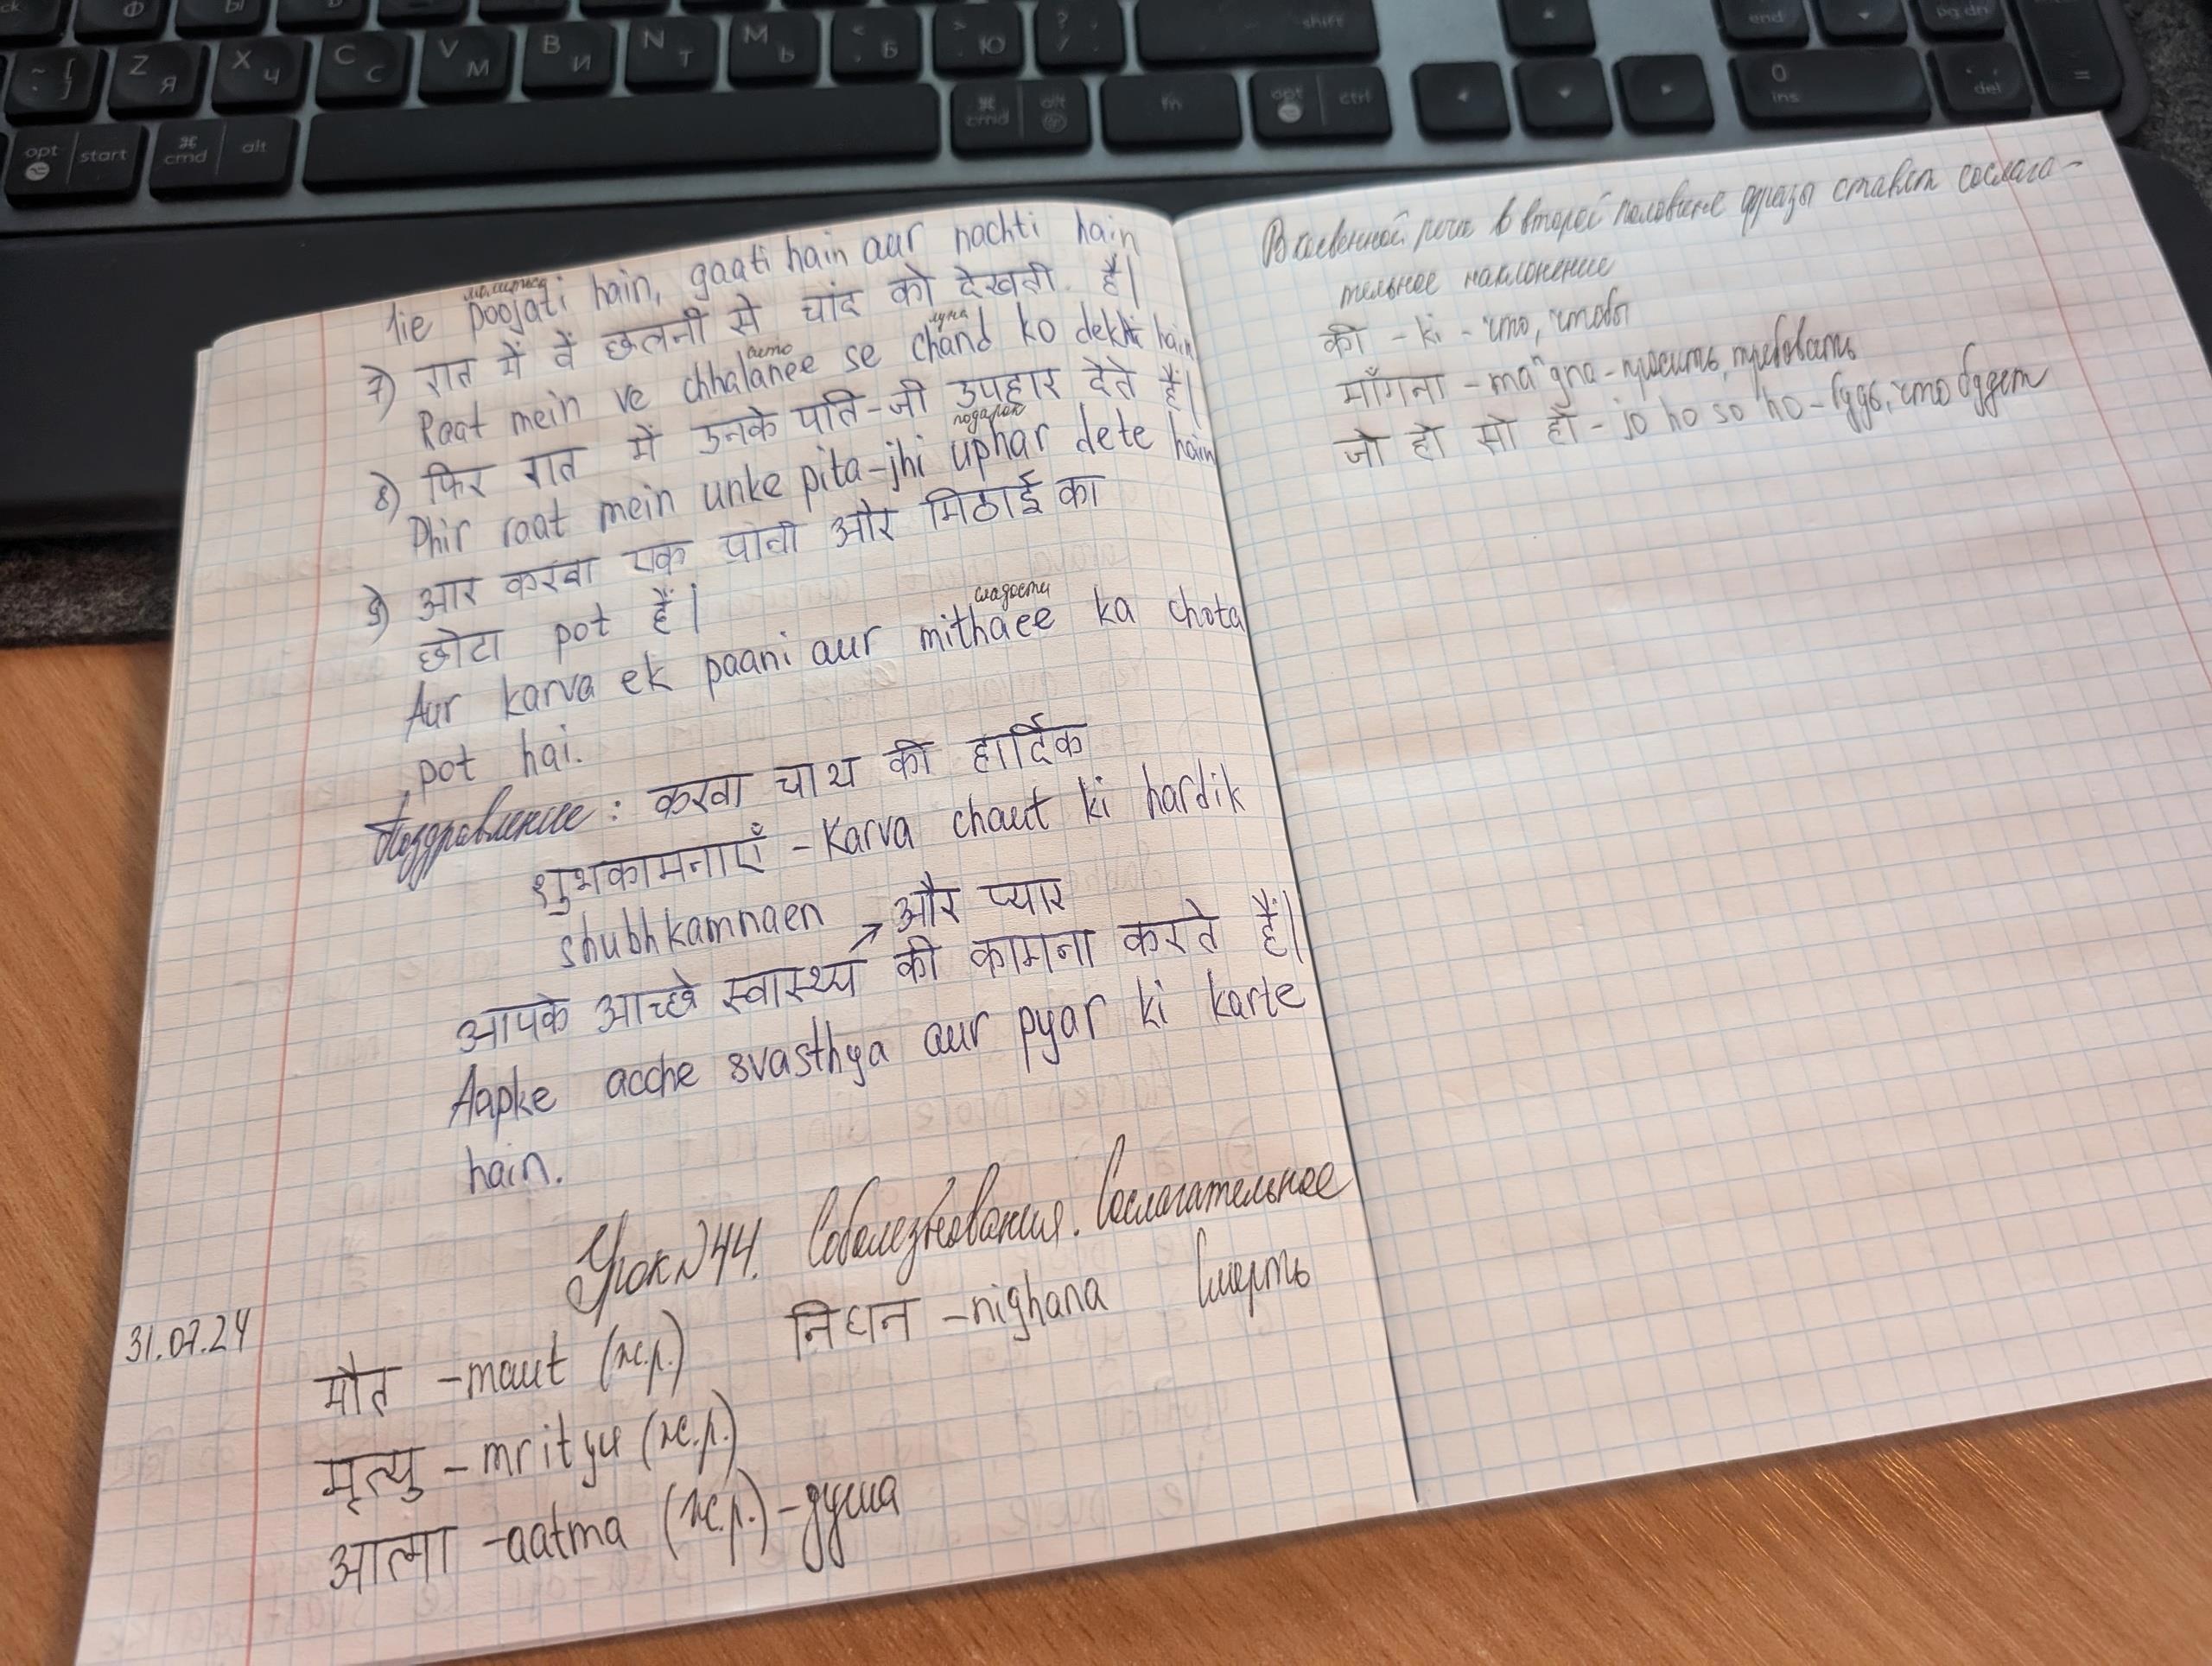 lie poojati hain, gaati hain aur nachti hain
молиться
7) रात में वें छलनी से चांद को देखती. हैं|
сито луна
Raat mein ve chhalanee se chand ko dekhti hain
8) फिर रात में उनके पति-जी उपहार देते हैं|
подарок
Phir raat mein unke pita-jhi uphar dete hain
9) आर करवा एक पानी और मिठाई का
छोटा pot हैं|
сладости
Aur karva ek paani aur mithaee ka chota
pot hai.
Поздравление: करवा चाथ की हार्दिक
शुभकामनाएँ - Karva chaut ki hardik
shubhkamnaen
→ और प्यार
आपके आच्छे स्वास्थ्य की कामना करते हैं|
Aapke acche svasthya aur pyar ki karte
hain.
Урок №44. Соболезнования. Сослагательное
31.07.24
मौत - maut (ж.р.) निधन - nighana Смерть
मृत्यु - mrityu (ж.р.)
आत्मा - aatma (ж.р.) - душа
В косвенной речи в второй половине фразы ставят сослага-
тельное наклонение
की - ki - что, чтобы
माँगना - maⁿgna - просить, требовать
जो हो सो हो - jo ho so ho - будь, что будет
Z Я
X Ч
C С
V М
B И
N Т
M Ь
< Б
> Ю
? /
shift
end
pg dn
opt start
cmd alt
cmd alt
fn
opt ctrl
0 ins
del
=